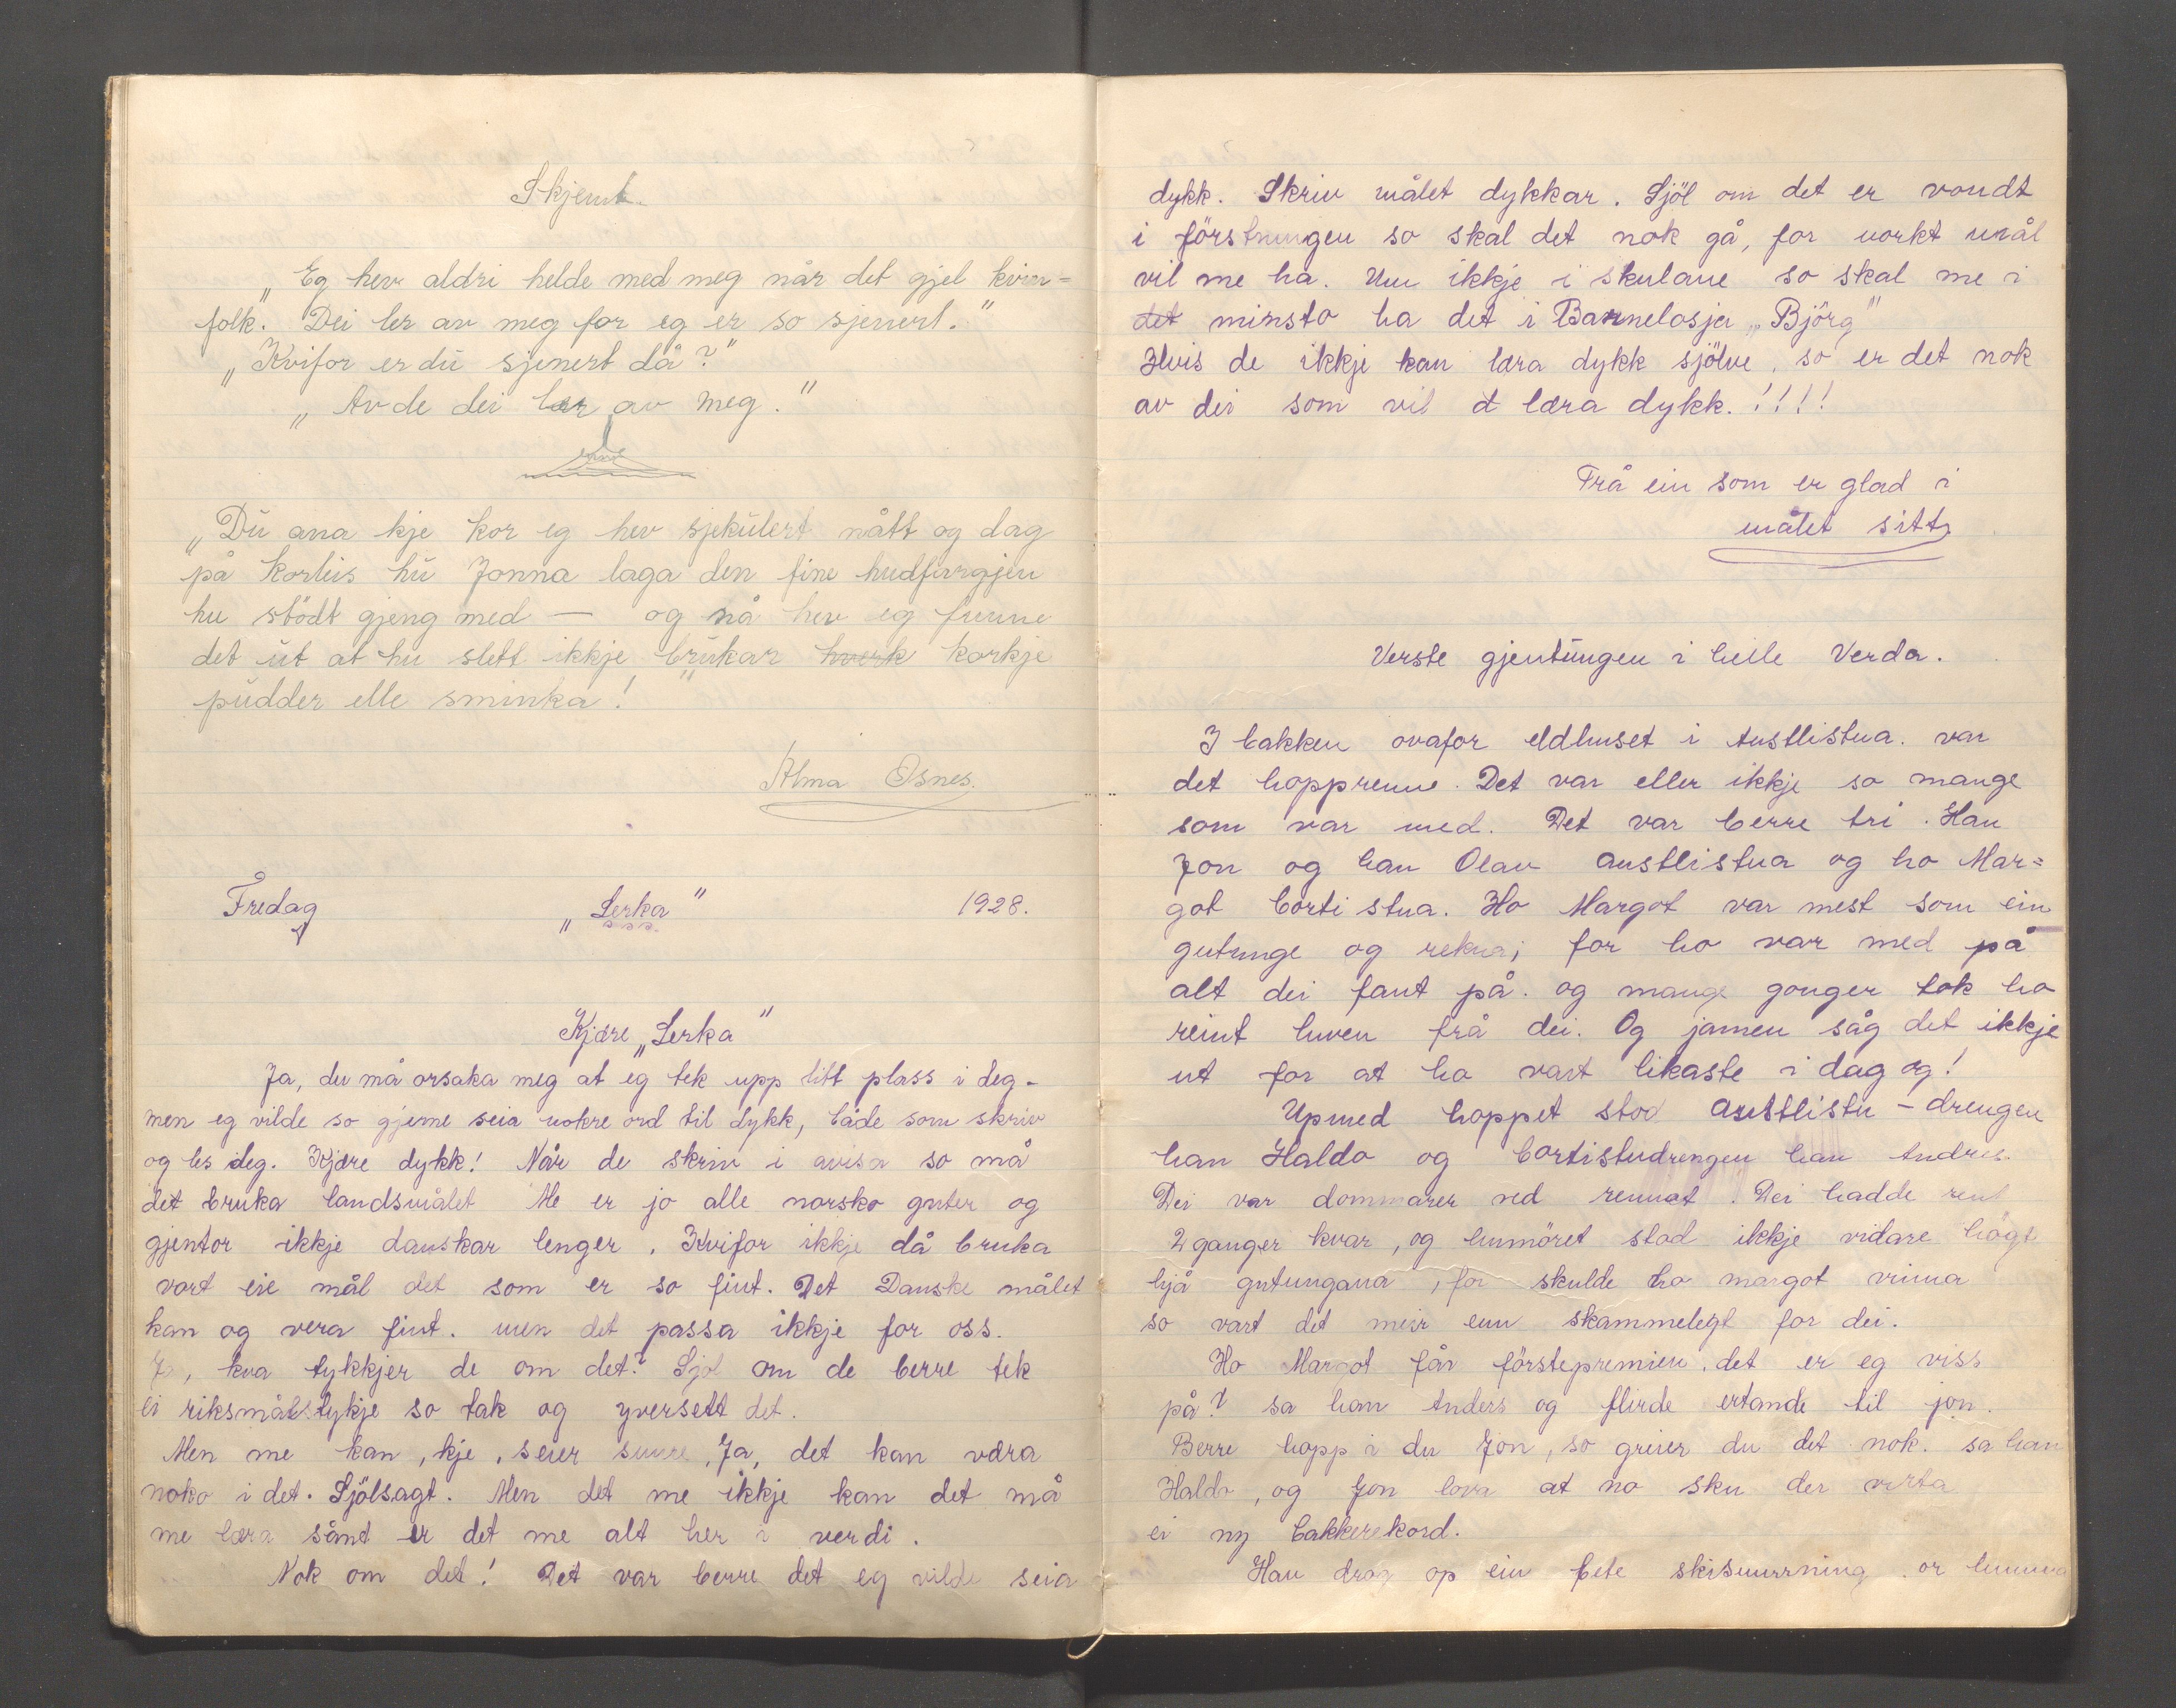 Skjemt.
„Eg hev aldri helde med meg når det gjel kvin=
folk. Dei ler av meg for eg er so sjenert."
„Kvifor er du sjenert då?"
„Av de dei lær av meg."
„Du ana kje kor eg hev sjekulert nått og dag
på korleis hu Jonna laga den fine hudfargjen
hu stödt gjeng med — og nå hev eg funne
det ut at hu slett ikkje brukar hverk korkje
pudder elle sminka!
Alma Osnes.
Fredag „Lerka" 1928.
Kjære „Lerka"
Ja, du må orsaka meg at eg tek upp litt plass i deg-
men eg vilde so gjerne seia nokre ord til dykk, både som skriv
og les deg. Kjære dykk! Når de skriv i avisa so må
det bruka landsmålet Me er jo alle norsko guter og
gjentor ikkje danskar lenger. Kvifor ikkje då bruka
vort eie mål det som er so fint. Det Danske målet
kan og vera fint. men det passa ikkje for oss.
Ja, kva tykkjer de om det? Sjöl om de berre tek
ei riksmålstykje so tak og yversett det.
Men me kan, kje, seier sume, Ja, det kan væra
noko i det. Sjölsagt. Men det me ikkje kan det må
me læra sånt er det me alt her i verdi.
Nok om det! Det var berre det eg vilde seia
dykk. Skriv målet dykkar. Sjöl om det er vondt
i förstningen so skal det nok gå, for norkt mål
vil me ha. Um ikkje i skulane so skal me i
det minsto ha det i Barnelosja „Björg"
Hvis de ikkje kan læra dykk sjölve, so er det nok
av dei som vil læra dykk.!!!!
Frå ein som er glad i
målet sitt.
Verste gjentungen i heile Verda.
I bakken ovafor eldhuset i Austlistua. var
det hopprenne. Det var eller ikkje so mange
som var med. Det var berre tri. Han
Jon og han Olav austlistua og ho Mar=
got bortistua. Ho Margot var mest som ein
gutunge og rekna; for ho var med på
alt dei fant på. og mange gonger tok ho
reint luven frå dei. Og jamen såg det ikkje
ut for at ho vart likaste i dag og!
Upmed hoppet stod austlistu-drengen
han Haldo og bortistudrengen han Andres.
Dei var dommarer ved rennet. Dei hadde rent
2 ganger kvar, og humöret stod ikkje vidare högt
hjå gutungana, for skulde ho margot vinna
so vart det meir enn skammelegt for dei.
Ho Margot får förstepremien. det er eg viss
på? sa han Anders og flirde ertande til jon.
Berre hopp i du Jon, so greier du det nok. sa han
Haldo, og Jon lova at no sku der verta
ei ny bakkerekord.
Han drog op ein bete skismurning. or lumma